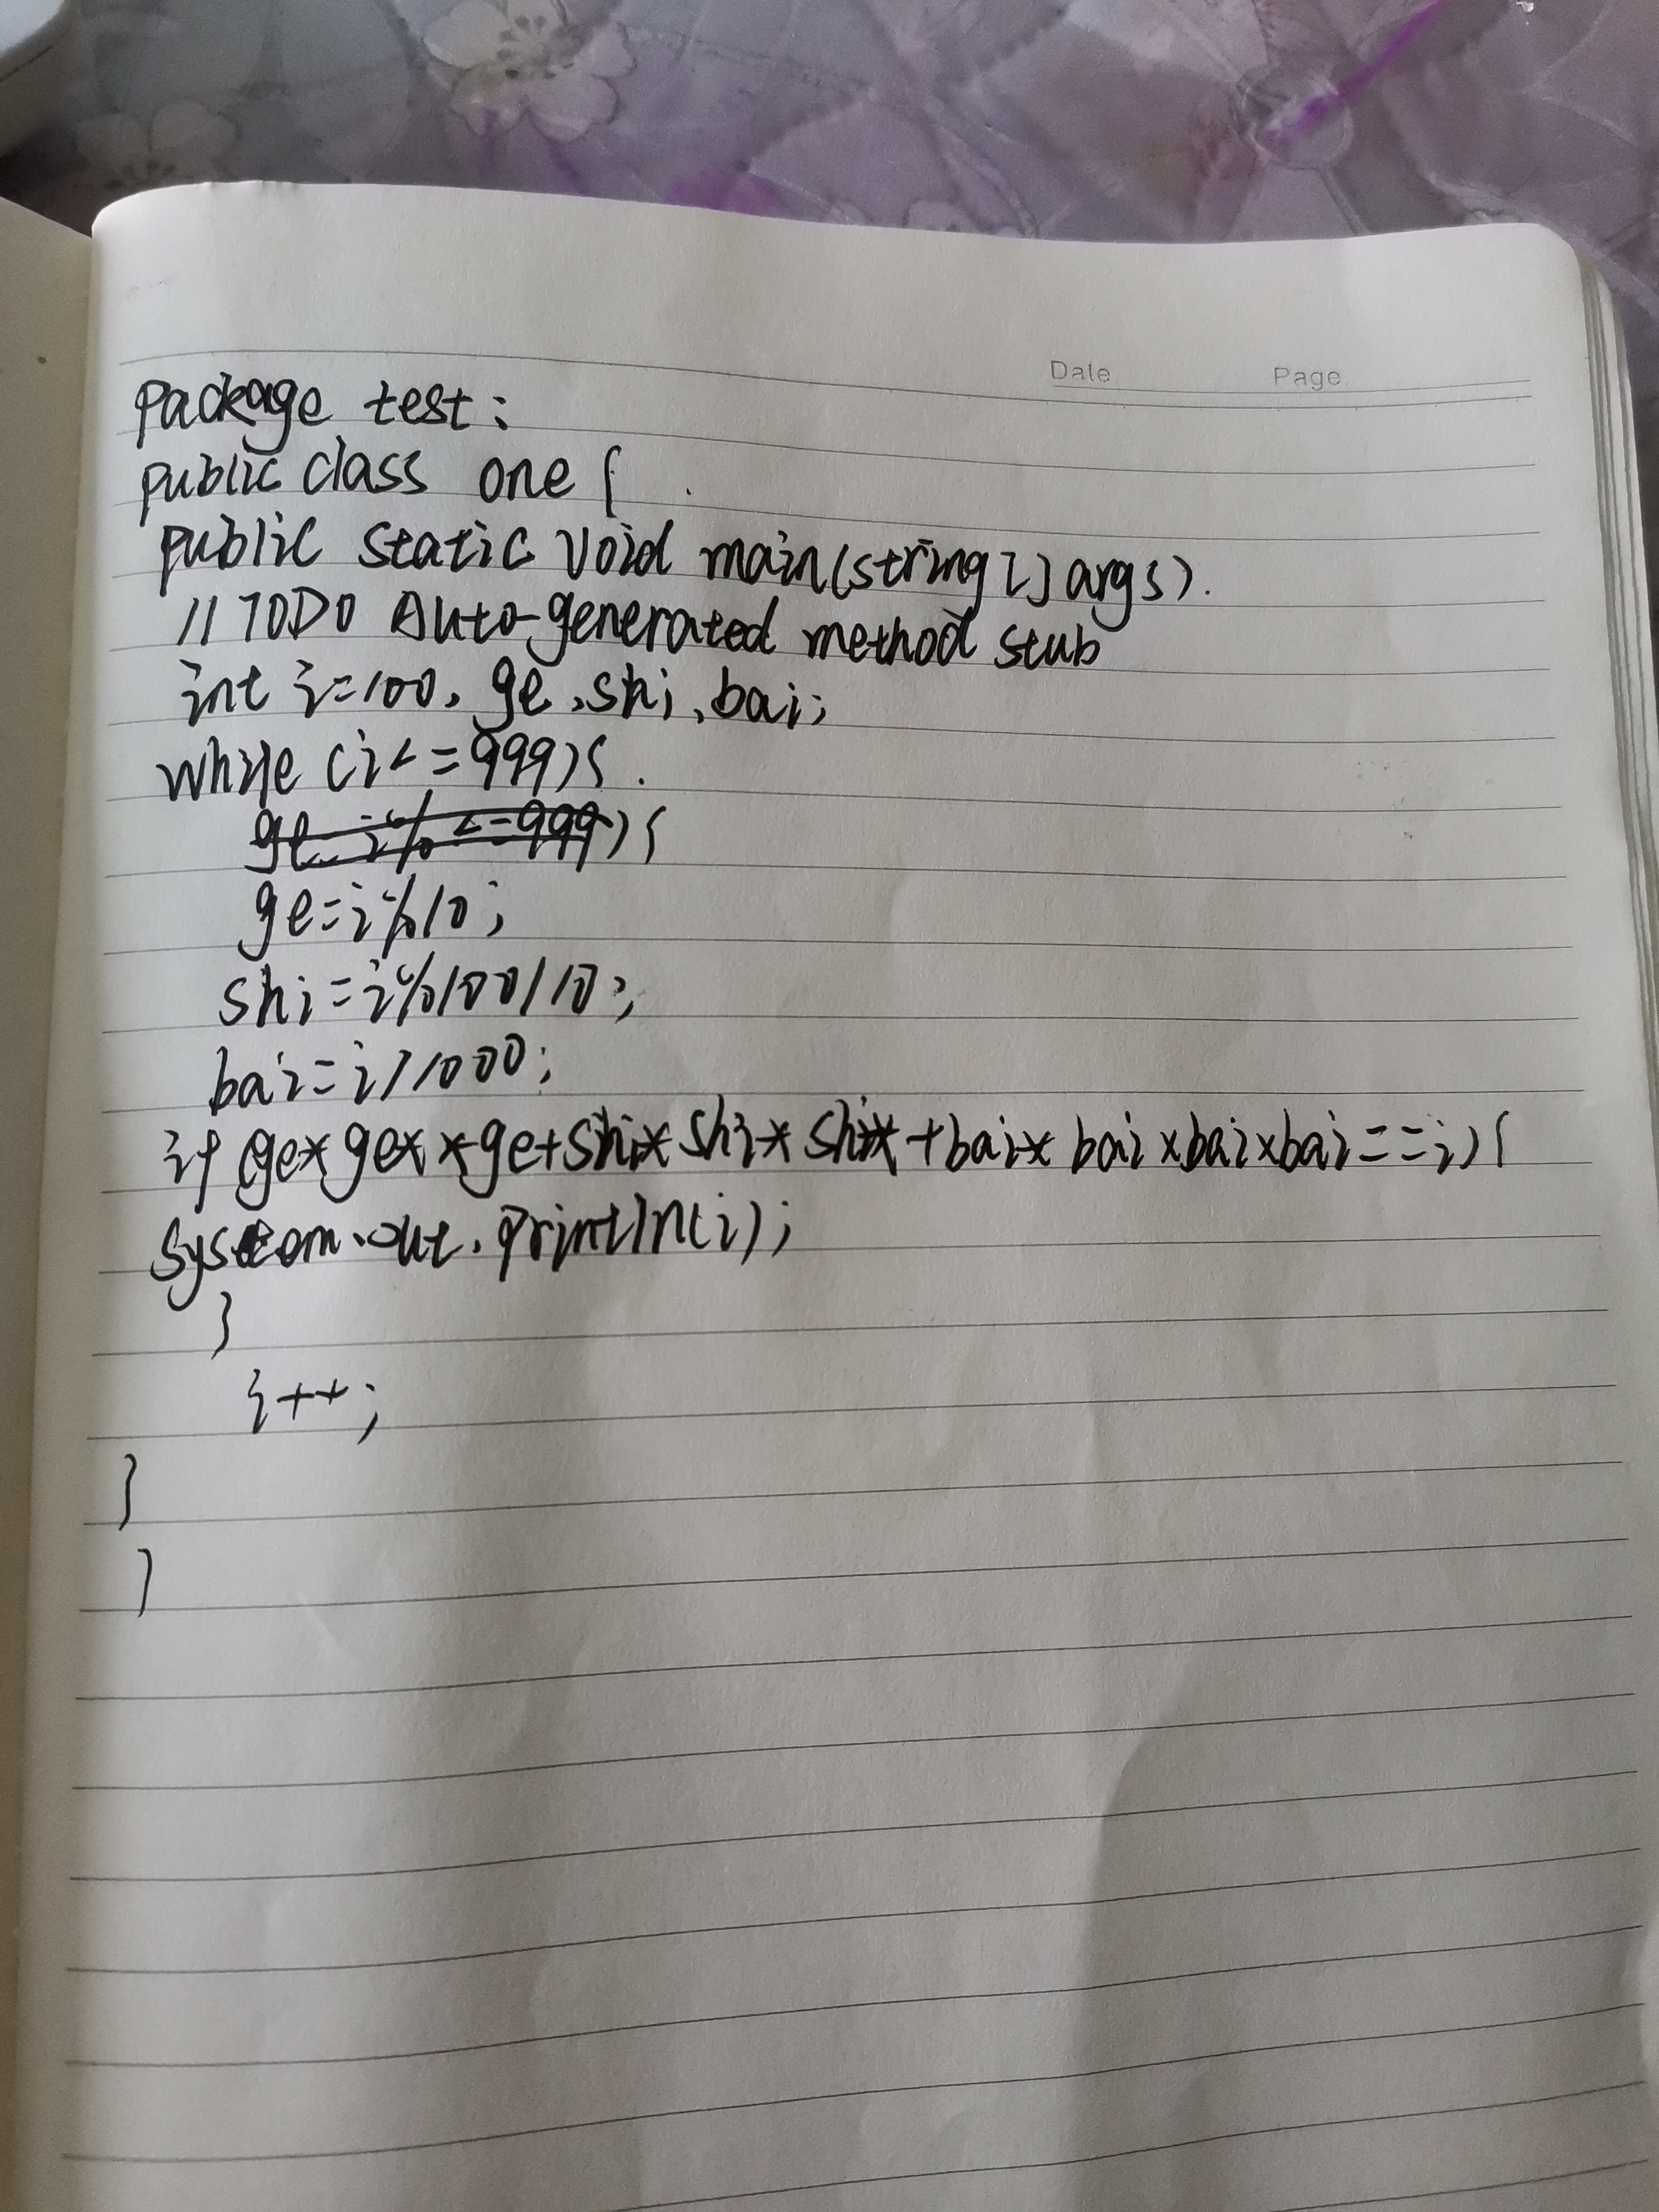 Date Page
package test:
public class one {
public static void main(string[] args).
// TODO Auto-generated method stub
int i=100, ge, shi, bai;
while (i<=999){
ge=i% <=999){
ge=i%10;
shi=i%100/10;
bai=i/1000;
if (ge*ge**ge+shi*shi*shi*+bai*bai×bai×bai==i){
system.out.println(i);
}
i++;
}
}